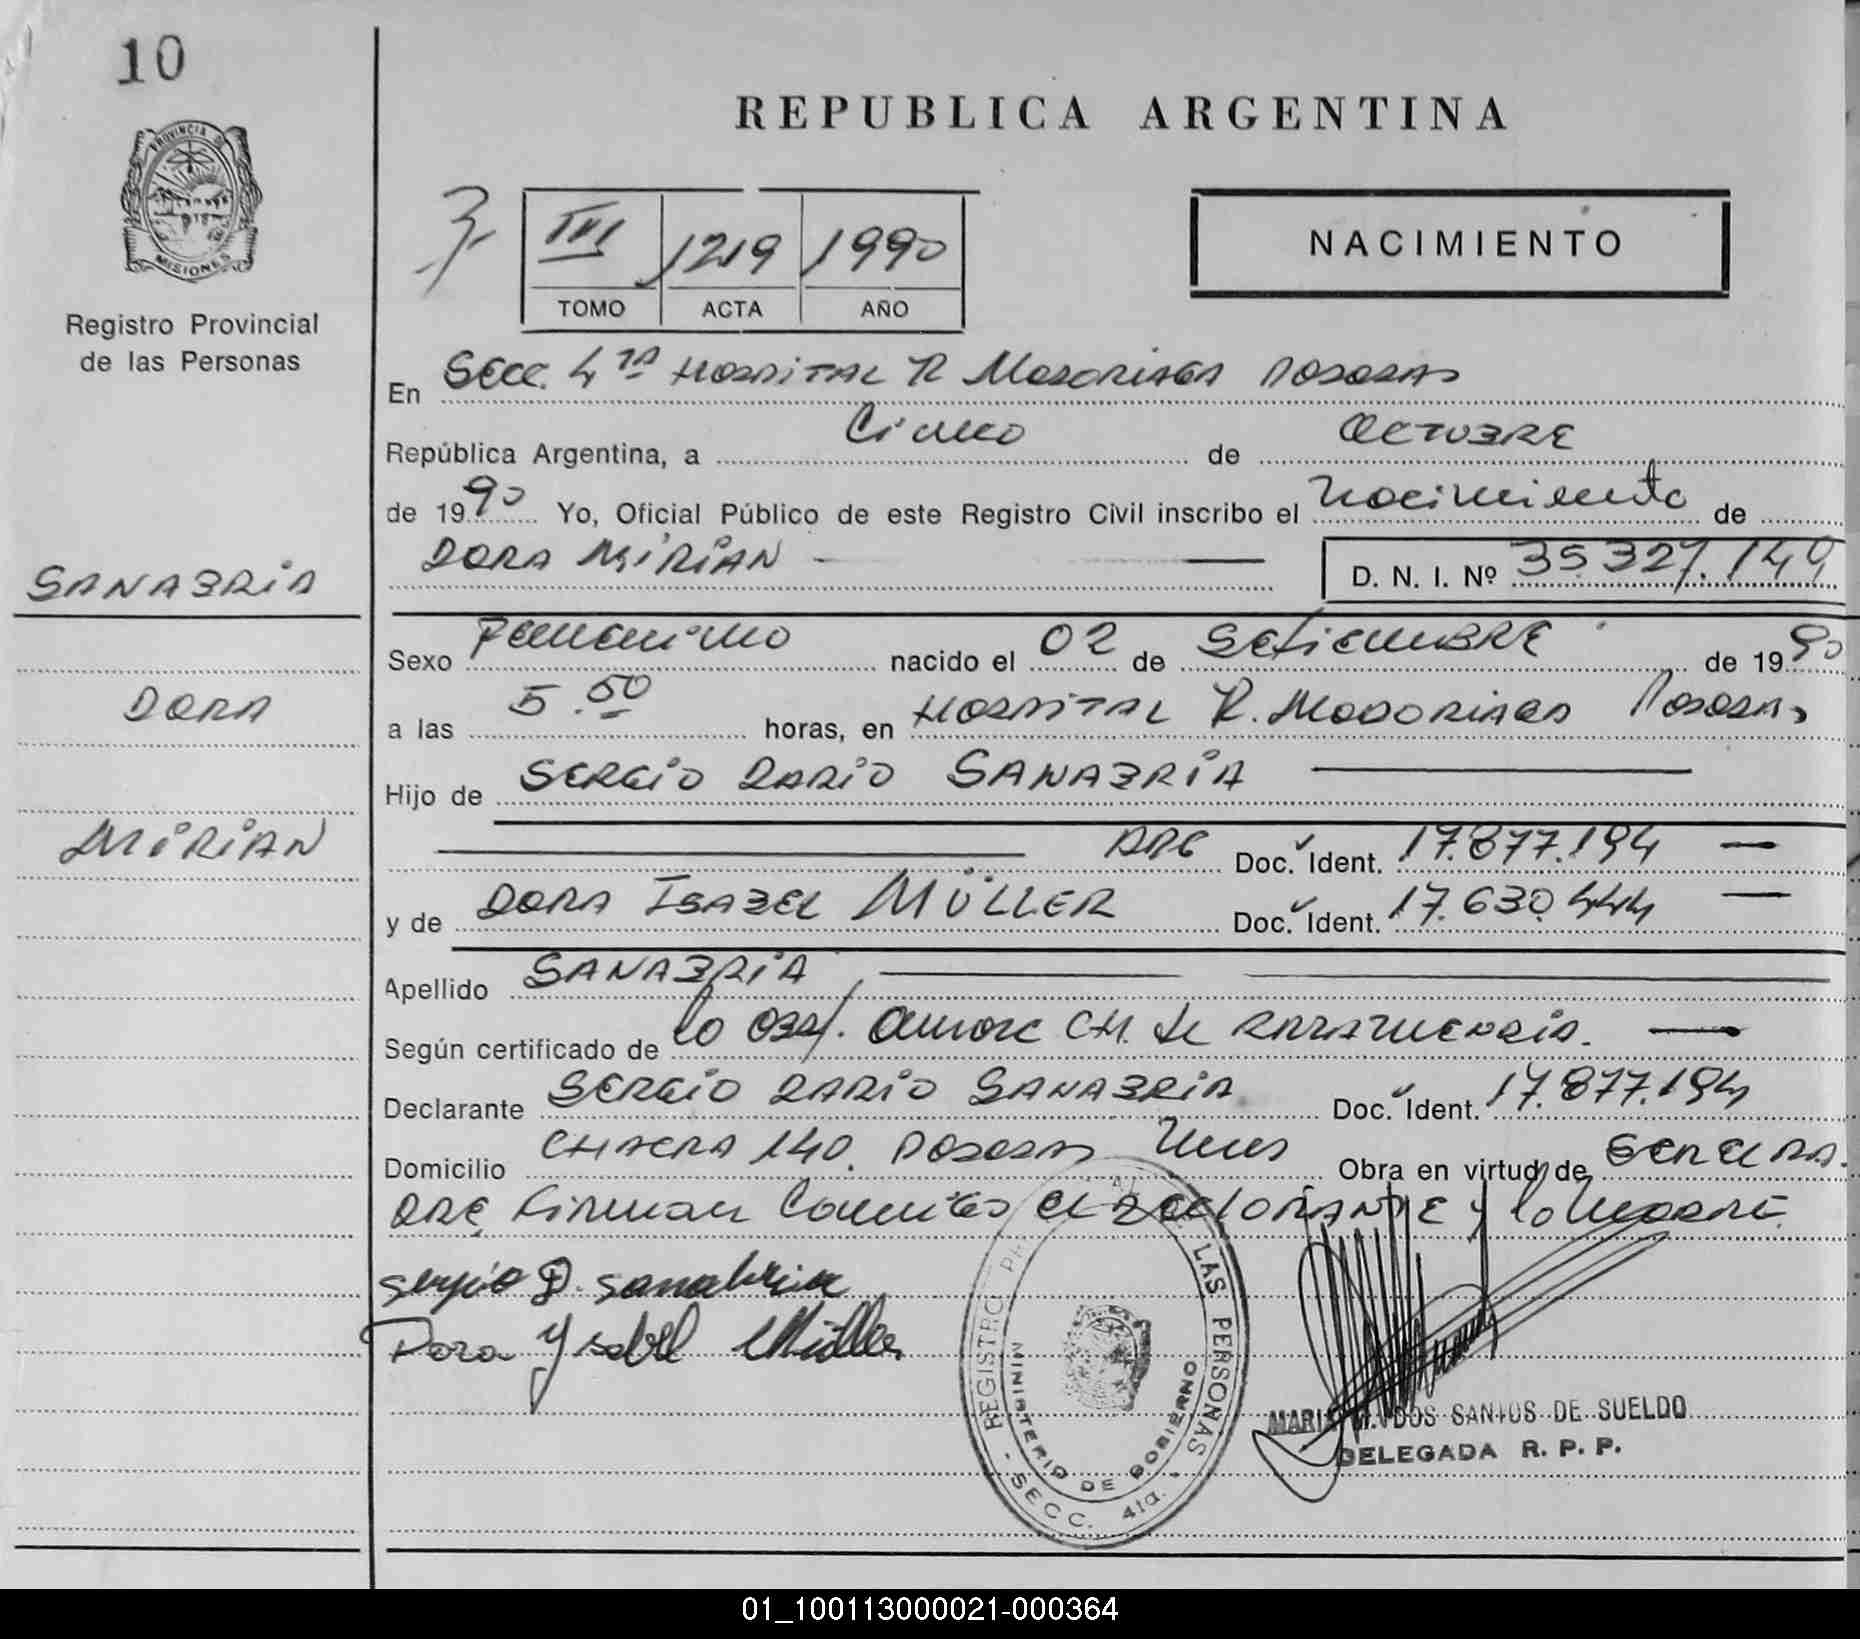 10
REPUBLICA ARGENTINA
PROVINCIA DE
MISIONES
Registro Provincial
de las Personas
III 1219 1990
TOMO ACTA AÑO
NACIMIENTO
En Secc. 4ta Hospital R Madariaga Posadas
República Argentina, a Cinco de Octubre
de 1990 Yo, Oficial Público de este Registro Civil inscribo el Nacimiento de
DORA MIRIAN — — D. N. I. Nº 35.327.149
SANABRIA
DORA
MIRIAN
Sexo Femenino nacido el 02 de Setiembre de 1990
a las 5.50 horas, en Hospital R. Madariaga Posadas
Hijo de SERGIO DARIO SANABRIA —
— ARG Doc. Ident. 17.877.194 —
y de DORA ISABEL MÜLLER Doc. Ident. 17.630.444 —
Apellido SANABRIA — —
Según certificado de la Obst. CH. de —
Declarante SERGIO DARIO SANABRIA Doc. Ident. 17.877.194
Domicilio CHACRA 140. Posadas Mnes Obra en virtud de
Firman el declorante y la Madre
Sergio D. Sanabria
Dora Ysabel Müller
REGISTRO LAS PERSONAS - SECC. 4ta. -
MINISTERIO DE GOBIERNO
DOS SANTOS DE SUELDO
DELEGADA R. P. P.
01_100113000021-000364